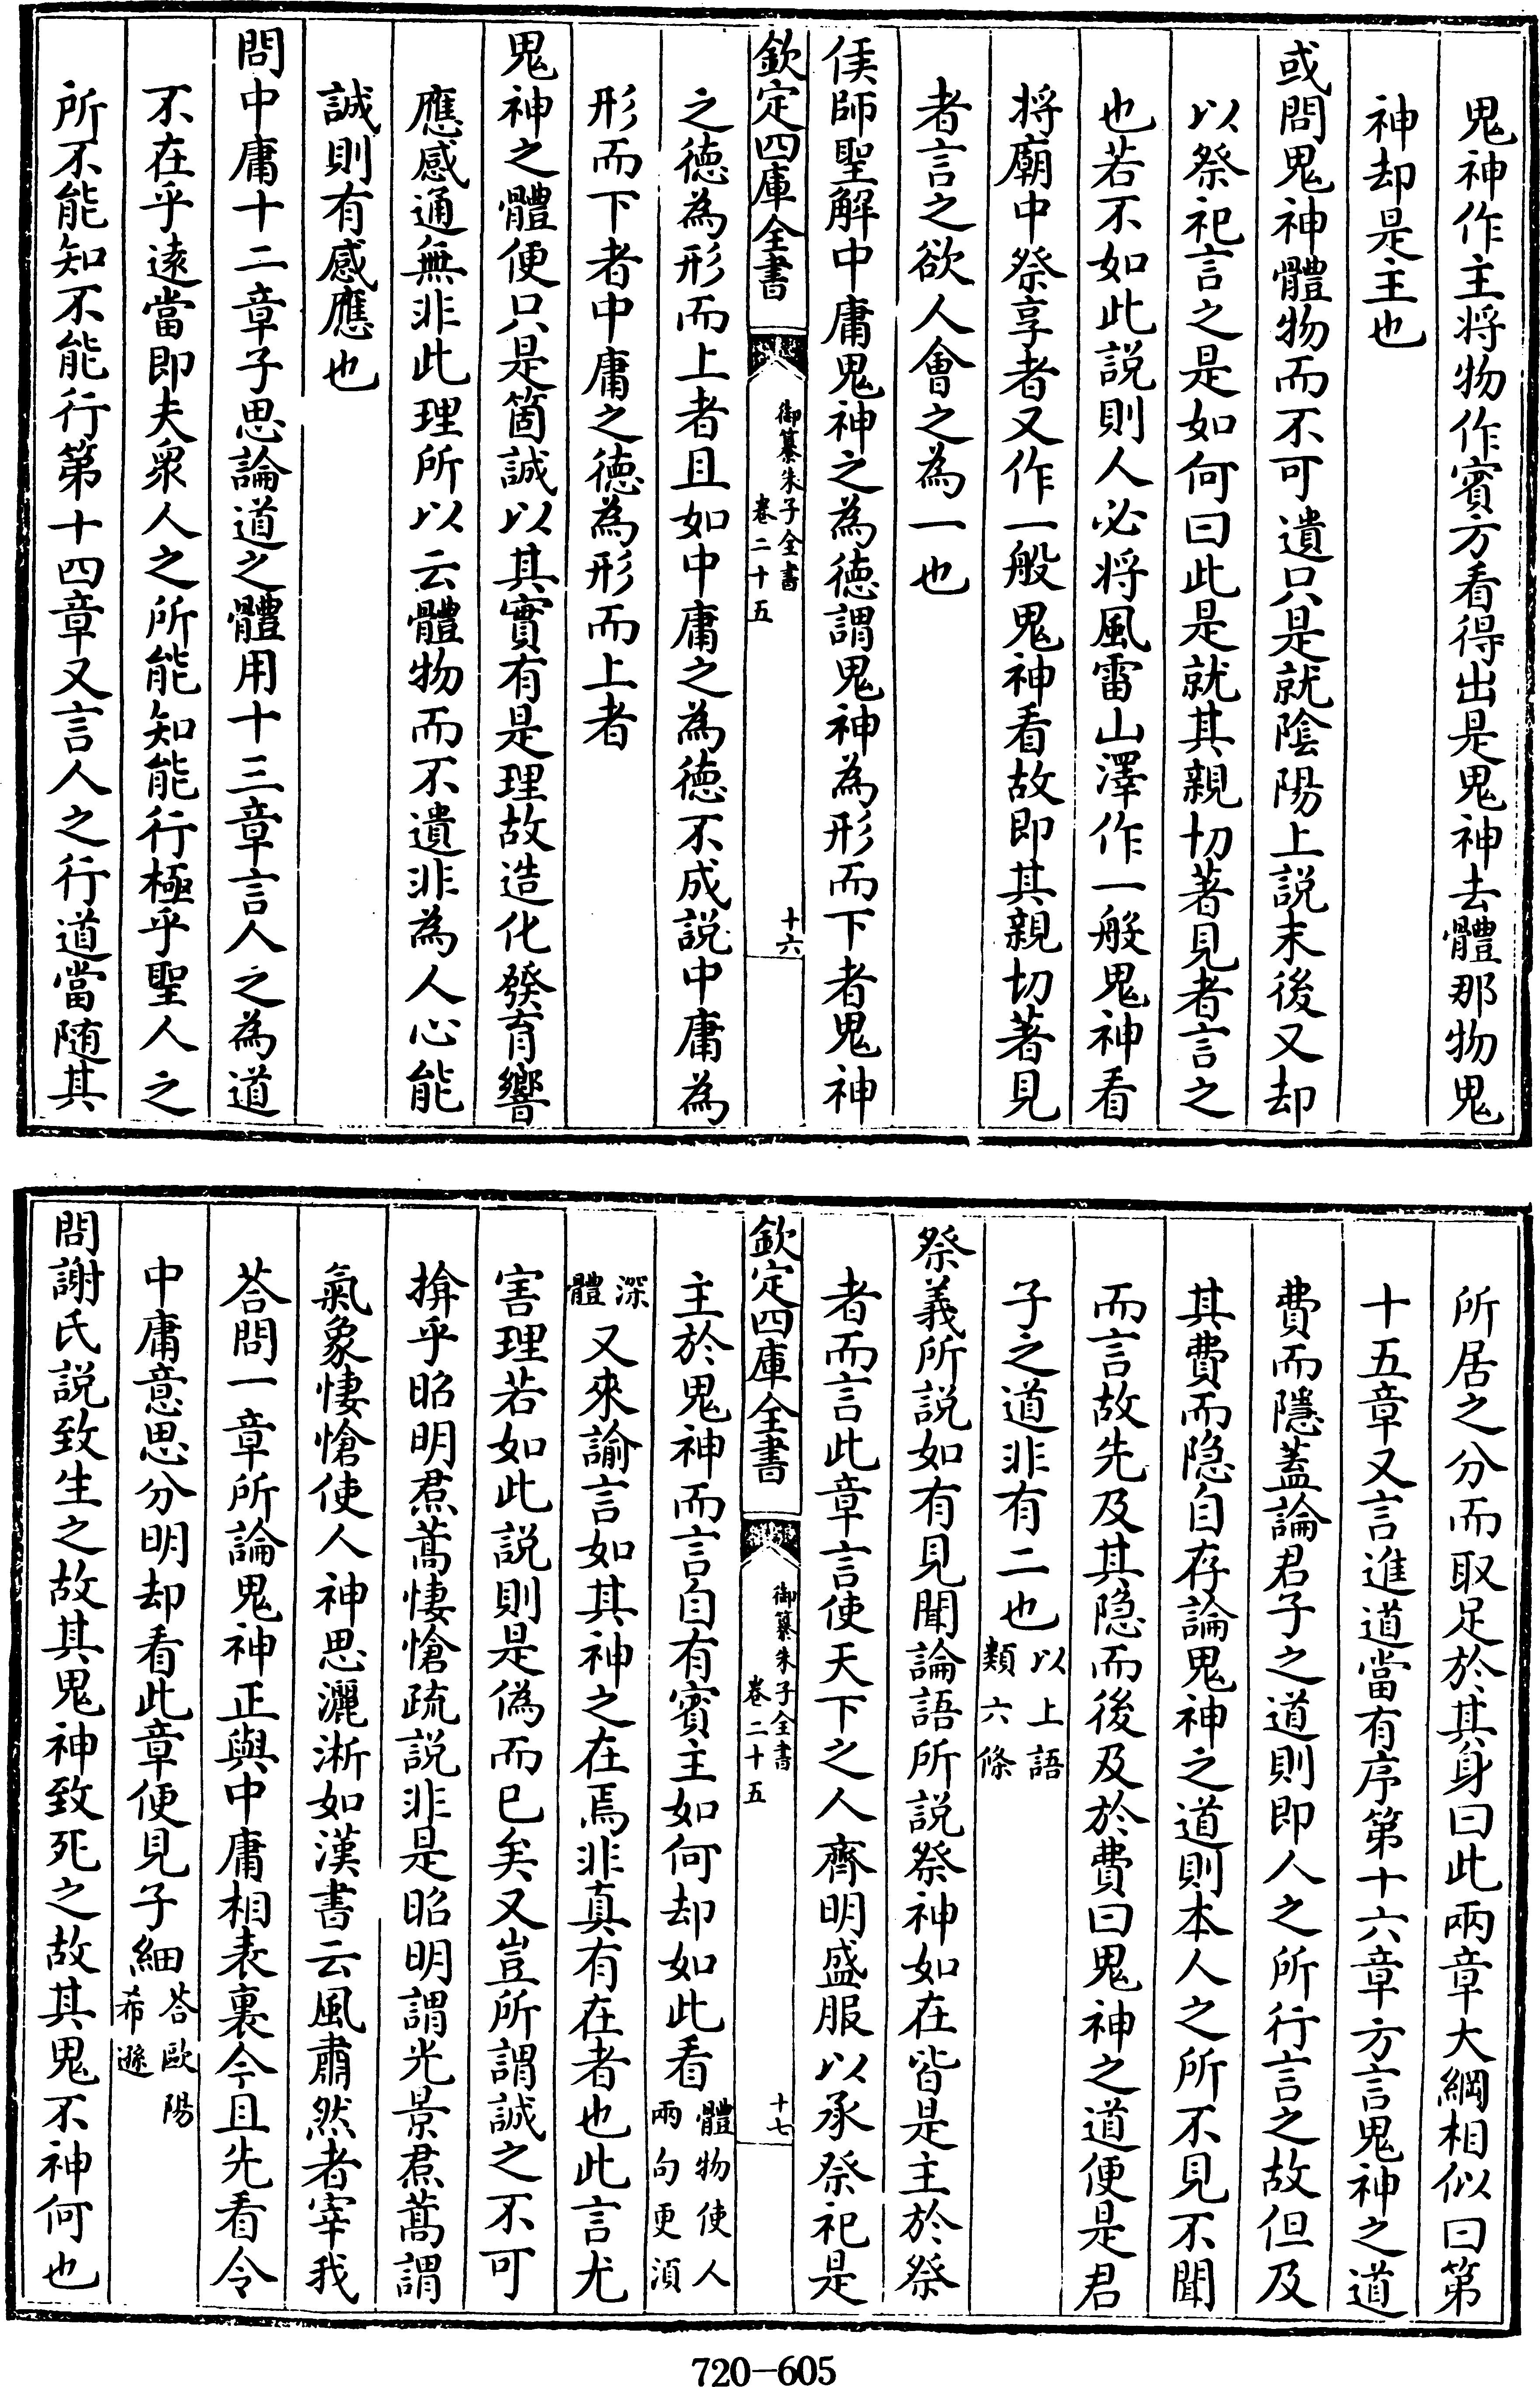 鬼神作主将物作賓方看得出是鬼神去體那物鬼
神却是主也
或問鬼神體物而不可遺只是就陰陽上説末後又却
以祭祀言之是如何曰此是就其親切著見者言之
也若不如此説則人必将風雷山澤作一般鬼神看
将廟中祭享者又作一般鬼神看故即其親切著見
者言之欲人會之為一也
侯師聖解中庸鬼神之為徳謂鬼神為形而下者鬼神
欽定四庫全書
御纂朱子全書
卷二十五
十六
之徳為形而上者且如中庸之為徳不成説中庸為
形而下者中庸之徳為形而上者
鬼神之體便只是箇誠以其實有是理故造化發育響
應感通無非此理所以云體物而不遺非為人心能
誠則有感應也
問中庸十二章子思論道之體用十三章言人之為道
不在乎逺當即夫衆人之所能知能行極乎聖人之
所不能知不能行第十四章又言人之行道當随其
所居之分而取足於其身曰此兩章大綱相似曰第
十五章又言進道當有序第十六章方言鬼神之道
費而隱蓋論君子之道則即人之所行言之故但及
其費而隐自存論鬼神之道則本人之所不見不聞
而言故先及其隐而後及於費曰鬼神之道便是君
子之道非有二也以上語
類六條
祭義所説如有見聞論語所説祭神如在皆是主於祭
者而言此章言使天下之人齊明盛服以承祭祀是
欽定四庫全書
御纂朱子全書
卷二十五
十七
主於鬼神而言自有賓主如何却如此看體物使人
兩句更湏
深
體又來諭言如其神之在焉非真有在者也此言尤
害理若如此説則是偽而已矣又豈所謂誠之不可
揜乎昭明焄蒿悽愴疏説非是昭明謂光景焄蒿謂
氣象悽愴使人神思灑淅如漢書云風肅然者宰我
荅問一章所論鬼神正與中庸相表裏今且先看令
中庸意思分明却看此章便見子細荅歐陽
希遜
問謝氏説致生之故其鬼神致死之故其鬼不神何也
720-605